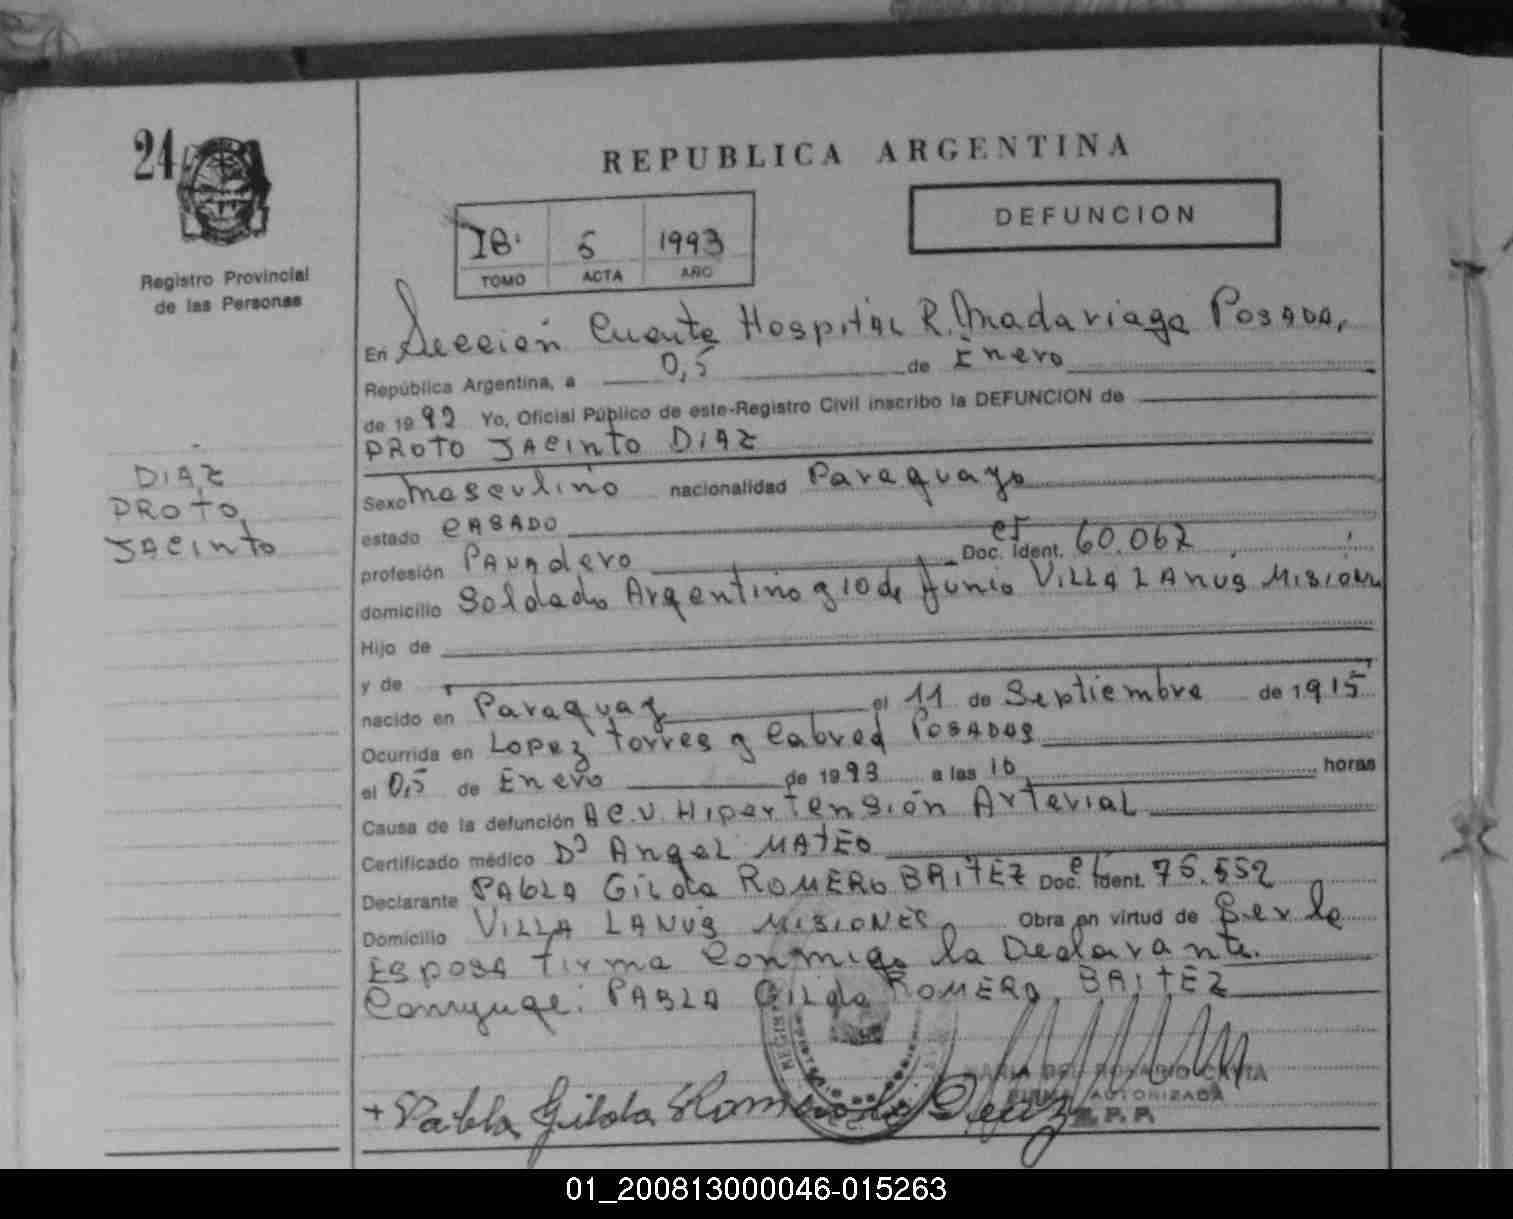 24
Registro Provincial
de las Personas
REPUBLICA ARGENTINA
DEFUNCION
IB. 5 1993
TOMO ACTA AÑO
En Sección Cuarta Hospital R. Madariaga POSADA,
República Argentina, a 0,5 de Enero
de 1992 Yo, Oficial Público de este Registro Civil inscribo la DEFUNCION de
PROTO JACINTO DIAZ
DIAZ
PROTO,
JACINTO
Sexo masculino nacionalidad Paraguayo
estado CASADO
profesión PANADERO Doc. Ident. CI 60.062
domicilio Soldado Argentino y 10 de Junio VILLA LANUS
Hijo de
y de
nacido en Paraguay el 11 de Septiembre de 1915
Ocurrida en LOPEZ Torres y Cabred POSADAS
el 0,5 de Enero de 1993 a las 10 horas
Causa de la defunción A C.V. Hipertensión Arterial
Certificado médico Dº Angel MATEO
Declarante PABLA GILDA ROMERO BRITEZ Doc. Ident. CI 75.552
Domicilio VILLA LANUS MISIONES Obra en virtud de Ser la
ESPOSA firma conmigo la Declarante.
Conyuge: PABLA GILDA ROMERO BRITEZ
MARIA DEL ROSARIO
FIRMA AUTORIZADA
R.P.P.
+ Pabla Gilda Romero de Diaz
01_200813000046-015263